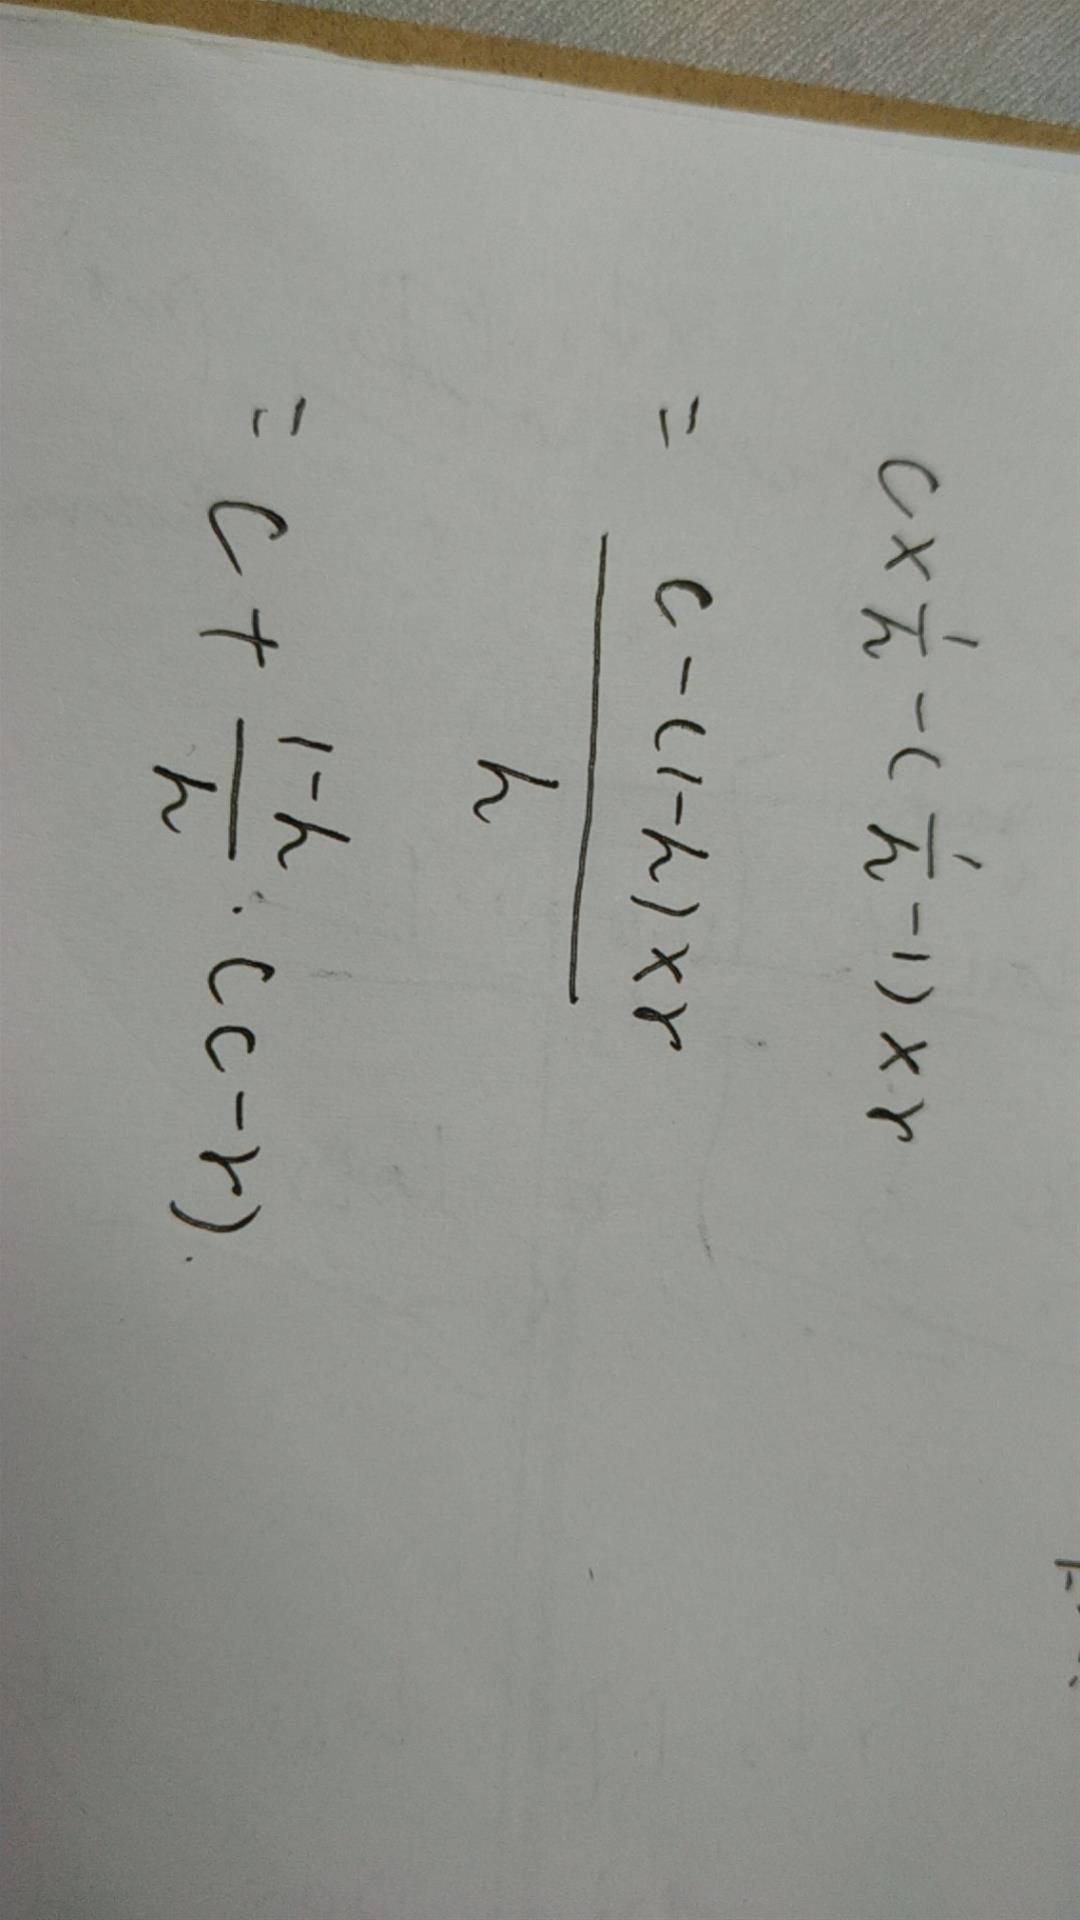 c × 1/h - (1/h - 1) × r
= c - (1-h) × r / h
= c + 1-h / h · (c-r).